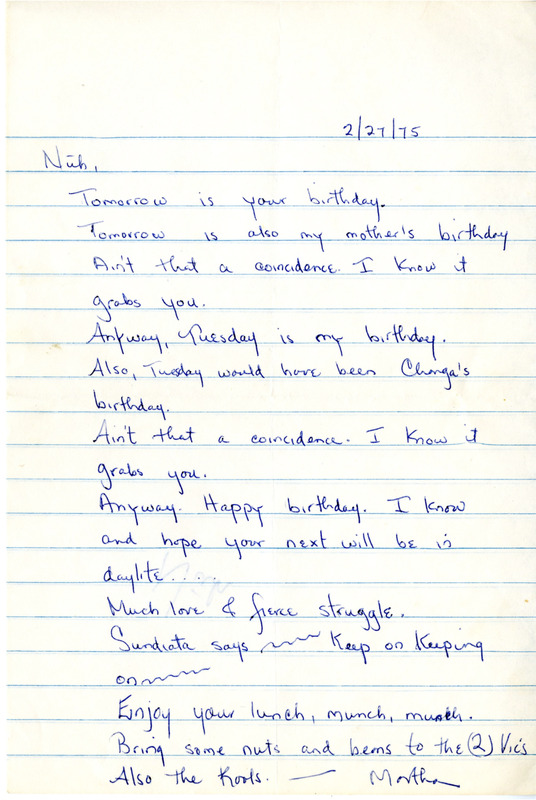 2/27/75
Nuh,
Tomorrow is your birthday.
Tomorrow is also my mother's birthday
Ain't that a coincidence. I know it
grabs you.
Anyway, Tuesday is my birthday.
Also, Tuesday would have been Changa's
birthday.
Ain't that a coincidence. I know it
grabs you.
Anyway. Happy birthday. I know
and hope your next will be in
daylite.....
Much love & fierce struggle.
Sundiata says Keep on Keeping
on
Enjoy your lunch, munch, munch.
Bring some nuts and to the (2) Vic's
Also the Kools. — Martha